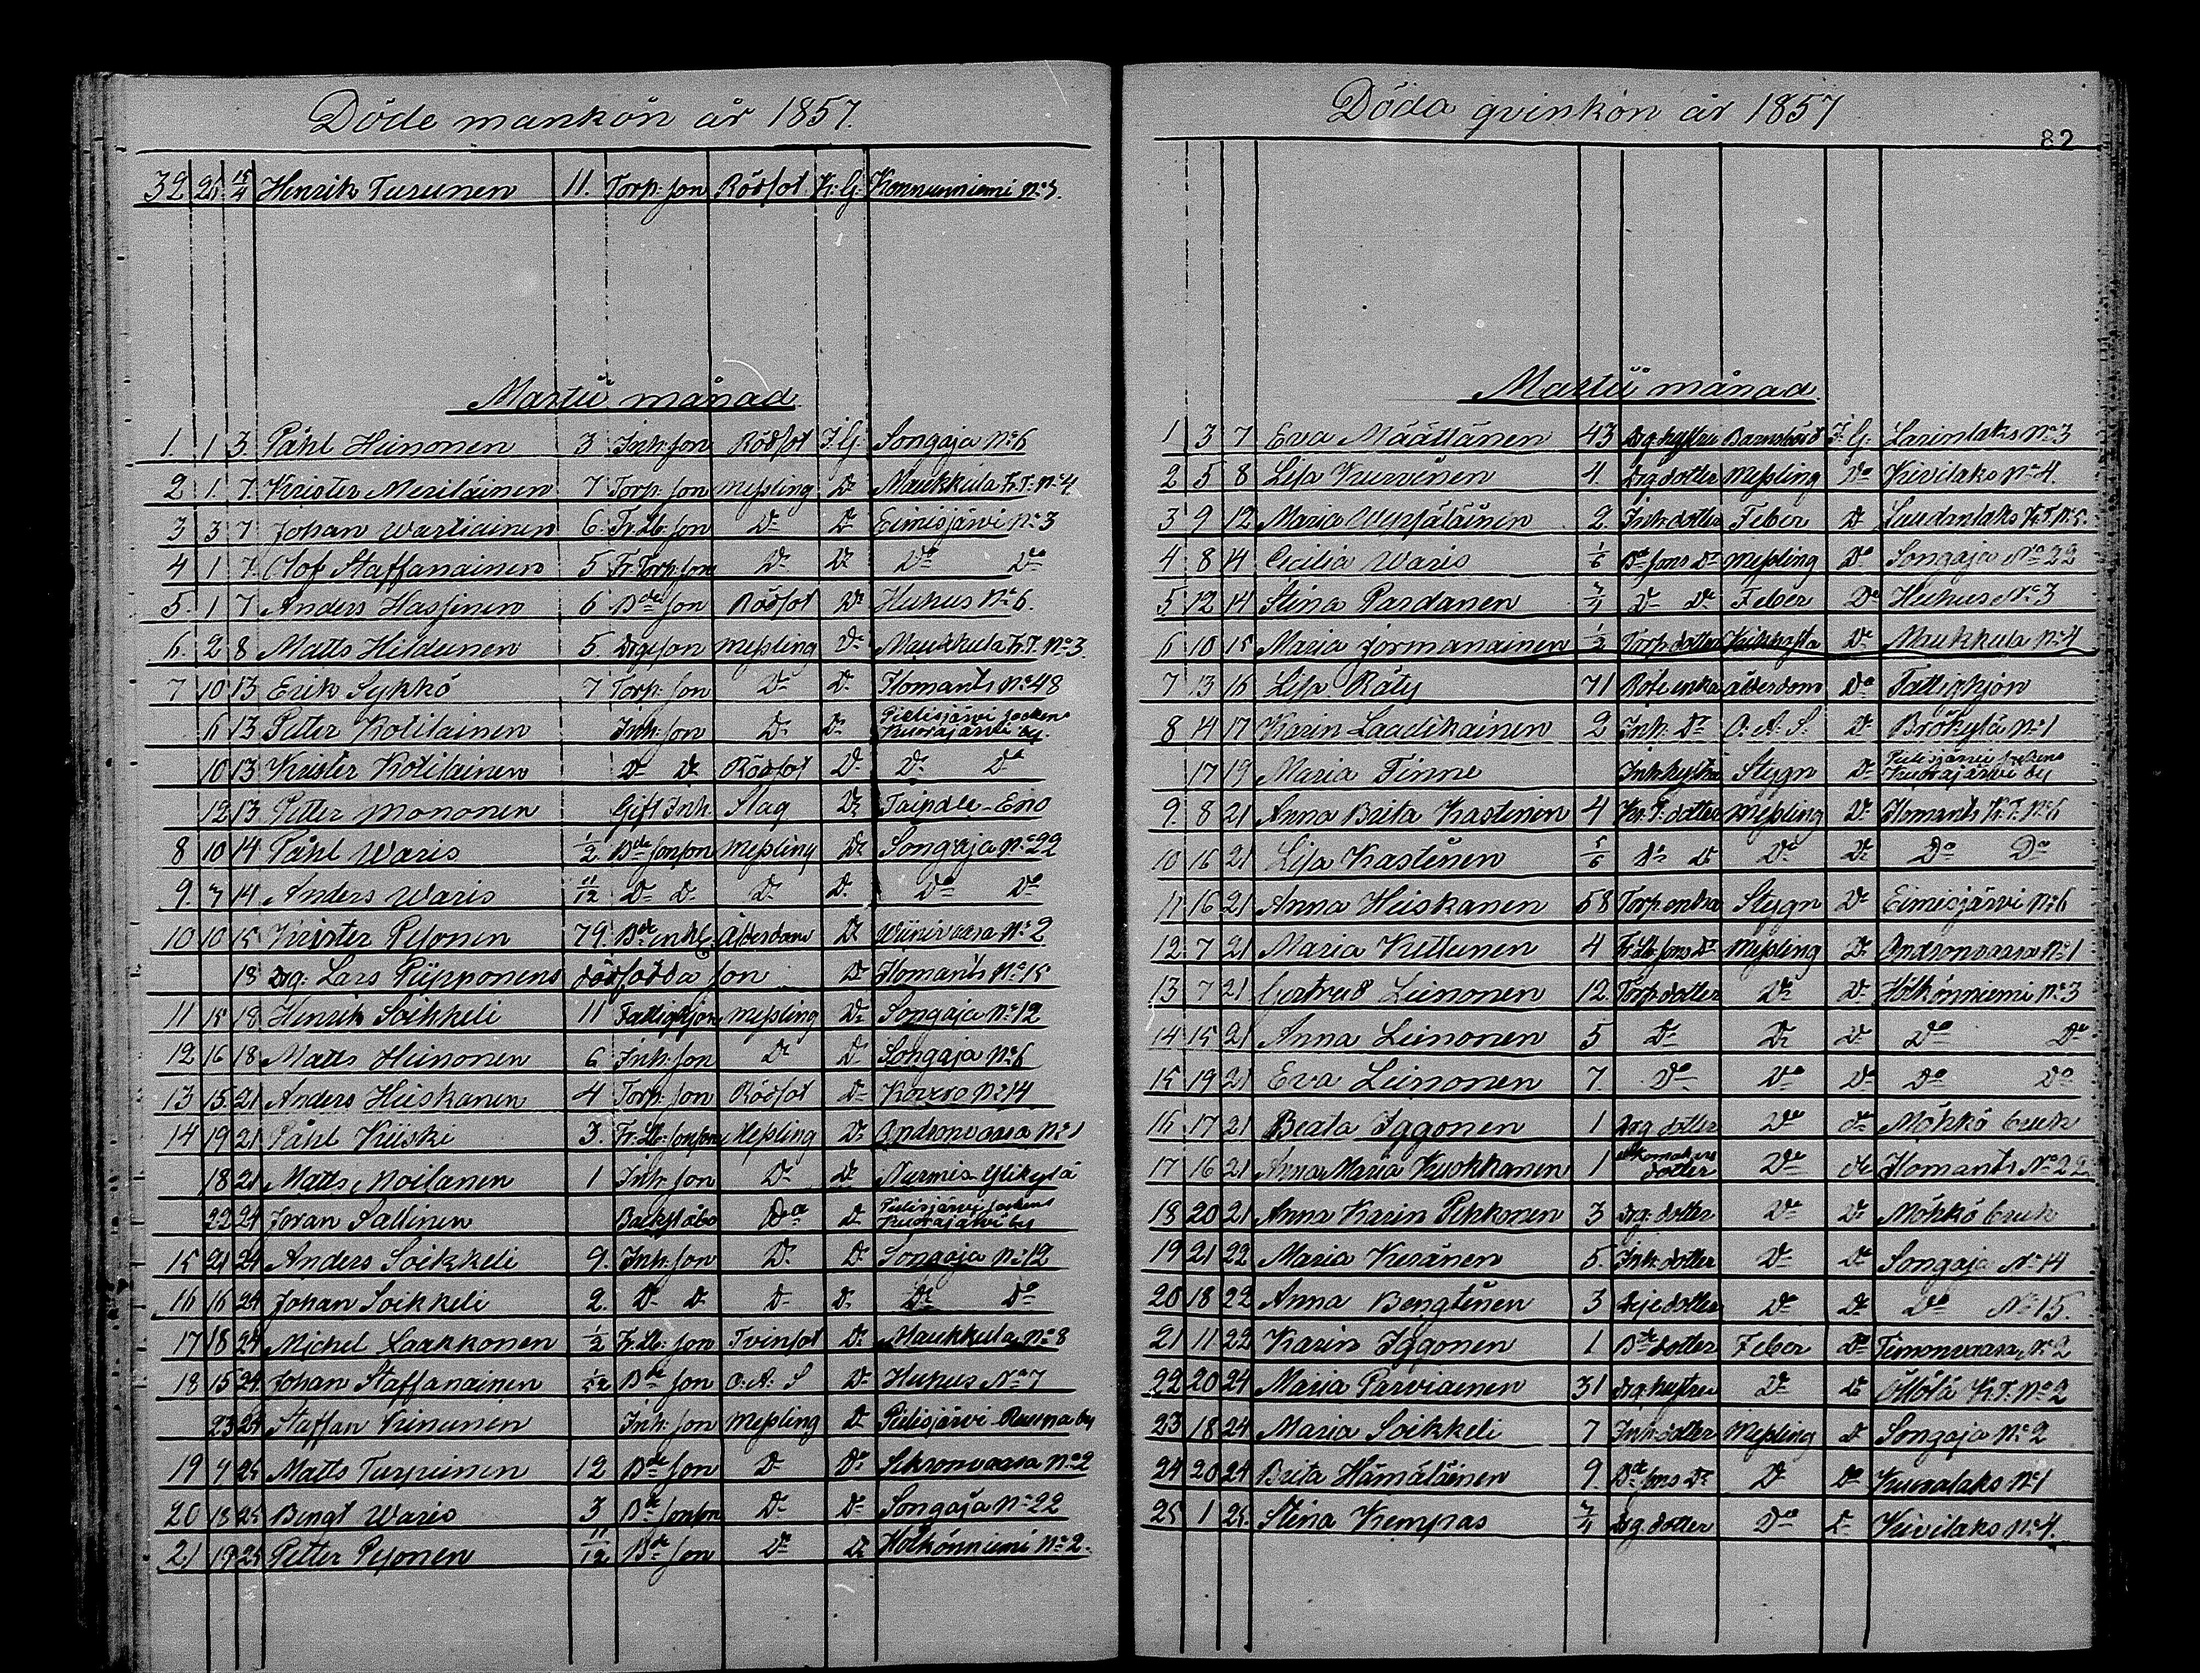 Döde mankön år 1857.
32 25 15/4 Henrik Turunen 11. Torp: son Rödsot K: G: Konnunniemi No 3.
Martii månad
1. 1 3. Påhl Heinonen 3 Inh: son Rödsot I. G. Songaja No 6
2 1. 7. Krister Meriläinen 7 Torp. son Messling Do Maukkula K:T: No 4
3 3 7 Johan Wartiainen 6. Fr. Lb: son Do Do Eimisjärvi No 3
4 1 7. Olof Staffanainen 5 Fr. Torp: son Do Do Do Do
5. 1 7 Anders Hassinen 6 Bde son Rödsot Do Huhus No 6.
6. 2 8 Matts Hildunen 5. Drg: son Messling Do Maukkula K:T. No 3.
7 10 13 Erik Sykkö 7 Torp: son Do Do Ilomants No 48
6 13 Petter Kotilainen Inh: son Do Do Pielisjärvi socken Kuorajärvi by.
10 13 Krister Kotilainen Do Do Rödsot Do Do Do
12 13 Petter Mononen Gift Inh. Slag Do Taipale-Eno
8 10 14 Påhl Waris 1/2 Bde sonson Messling Do Songaja No 22
9. 7 14 Anders Waris 11/12 Do Do Do Do Do Do
10 10 15 Krister Pesonen 79. Bde enkl. Ålderdom Do Wiinivaara No 2
18 Drg: Lars Piipponens dödfödda son Do Ilomants No 15
11 15 18 Henrik Soikkeli 11 Fattighjon Messling Do Songaja No 12
12 16 18 Matts Heinonen 6 Inh. son Do Do Songaja No 6
13 15 21 Anders Heiskanen 4 Torp: son Rödsot Do Kovero No 14
14 19 21 Påhl Kiiski 3. Fr. Lb: sonson Messling Do Andronvaara No 1
18 21 Matts Moilanen 1 Inh: son Do Do Nurmis-Ylikylä
22 24 Joran Sallinen Do Do Pielisjärvi socken Kuorajärvi by
15 21 24 Anders Soikkeli 9. Inh. son Do Do Songaja No 12
16 16 24 Johan Soikkeli 2. Do Do Do Do Do Do
17 18 24 Michel Laakkonen 1/2 Fr. Lb: son Tvinsot Do Maukkula No 8
18 15 24 Johan Staffanainen Bde son O. A. S Do Huhus No 7
23 24 Staffan Keinunen Inh: son Messling Do Pielisjärvi by
19 9 25 Matts Turpeinen 12 Bde son Do Do Sikronvaara No 2
20 18 25 Bengt Waris 3 Bde sonson Do Do Songaja No 22
21 19 25 Petter Pesonen 11/12 Bde son Do Do Hölkönniemi No 2.
Döda qvinkön år 1857
82
Martii månad
1 3 7 Eva Määttänen 43 Drg. hustru Barnsbörd I: G: Larinlaks No 3
2 5 8 Lisa Kurvinen 4. Drg. dotter Messling Do Kivilaks No 4.
3 9 12 Maria Weppäläinen 2. Inh. dotter Feber Do K.T. No 5.
4 8 14 Cecilia Waris 1/6 Bde sons Do Messling Do Songaja No 22
5 12 14 Stina Pardanen 3/4 Do Do Feber Do Huhus No 3
6 10 15 Maria Jormanainen 1/2 Torp. dotter Kikhosta Do Maukkula No 4
7 13 16 Lisa Räty 71 Rote enka ålderdom Do Fattighjon
8 14 17 Karin Laadikainen 2 Inh. Do O. A. S. Do Brökylä No 1
17 19 Maria Tinne Inh. hustru Stygn Do Pielisjärvi sockens Kuorajärvi by
9. 8 21 Anna Brita Kastinen 4 Kr. T: dotter Messling Do Ilomants K: T. No 6
10 16 21 Lisa Kastinen 5/6 Do Do Do Do Do Do
11 16 21 Anna Heiskanen 58 Torp. enka Stygn Do Eimisjärvi No 6
12 7 21 Maria Kettunen 4 Fr. Lb: sons Do Messling Do Andronvaara No 1
13 7 21 Gertrud Leinonen 12. Torp. dotter Do Do Hölkönniemi No 3
14 15 21 Anna Leinonen 5 Do Do Do Do Do
15 19 21 Eva Leinonen 7. Do Do Do Do Do
16 17 21 Beata Iggonen 1 Drg dotter Do Do Möhkö bruk
17 16 21 Anna Maria Kuokkanen 1 Skomakare dotter Do do Ilomants No 22
18 20 21 Anna Karin Pekkonen 3 Drg: dotter Do Do Möhkö bruk
19 21 22 Maria Keränen 5. Inh. dotter Do Do Songaja No 14
20 18 22 Anna Bengtinen 3 dotter Do Do Do No 15.
21 11 22 Karin Iggonen 1 Bde dotter Feber Do Timonvaara No 2
22 20 24 Maria Parviainen 31 Drg: hustru Do Do Öllölä K.T. No 2
23 18 24 Maria Soikkeli 7 Inh. dotter Messling Do Songaja No 2
24 20 24 Brita Hämäläinen 9. Bde sons Do Do Do Kuoralaks No 1
25 1 25. Stina Kempas 3/4 Drg. dotter Do Do Kivilaks No 4.